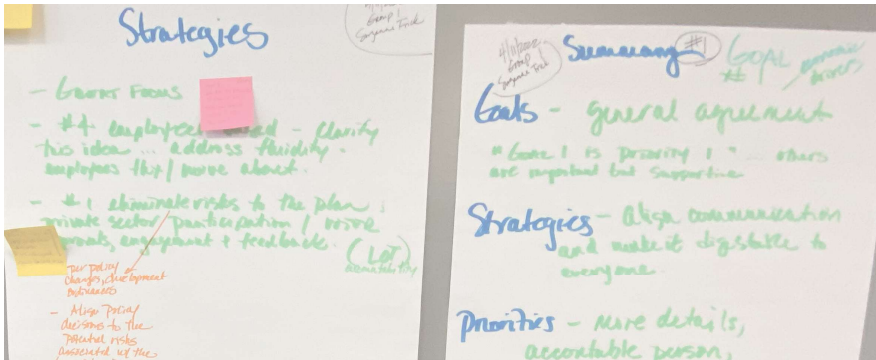 Strategies
Group 1
Suzanne
- Growth Focus
- #4 employee - Clarify
this idea ... address fluidity.
employees that / move about.
- #1 eliminate risks to the plan;
private sector participation / more
engagement + feedback.
(LOT)
accountability
- per policy
changes, development
- Align Policy
decisions to the
potential risks
associated w/ the
4/11/2022
Group
Suzanne
Summary #1
GOAL
#
economic
drivers
Goals - general agreement
"Goal 1 is priority 1" ... others
are important but supportive
Strategies - Align communication
and make it digestable to
everyone
Priorities - More details,
accountable person,